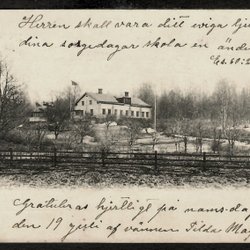 Herren skall vara ditt eviga lju
dina sorgedagar skola en änd
Es. 60:2
Gratuleras hjertligt på nams-da
den 19 af vännen Tilda Ma